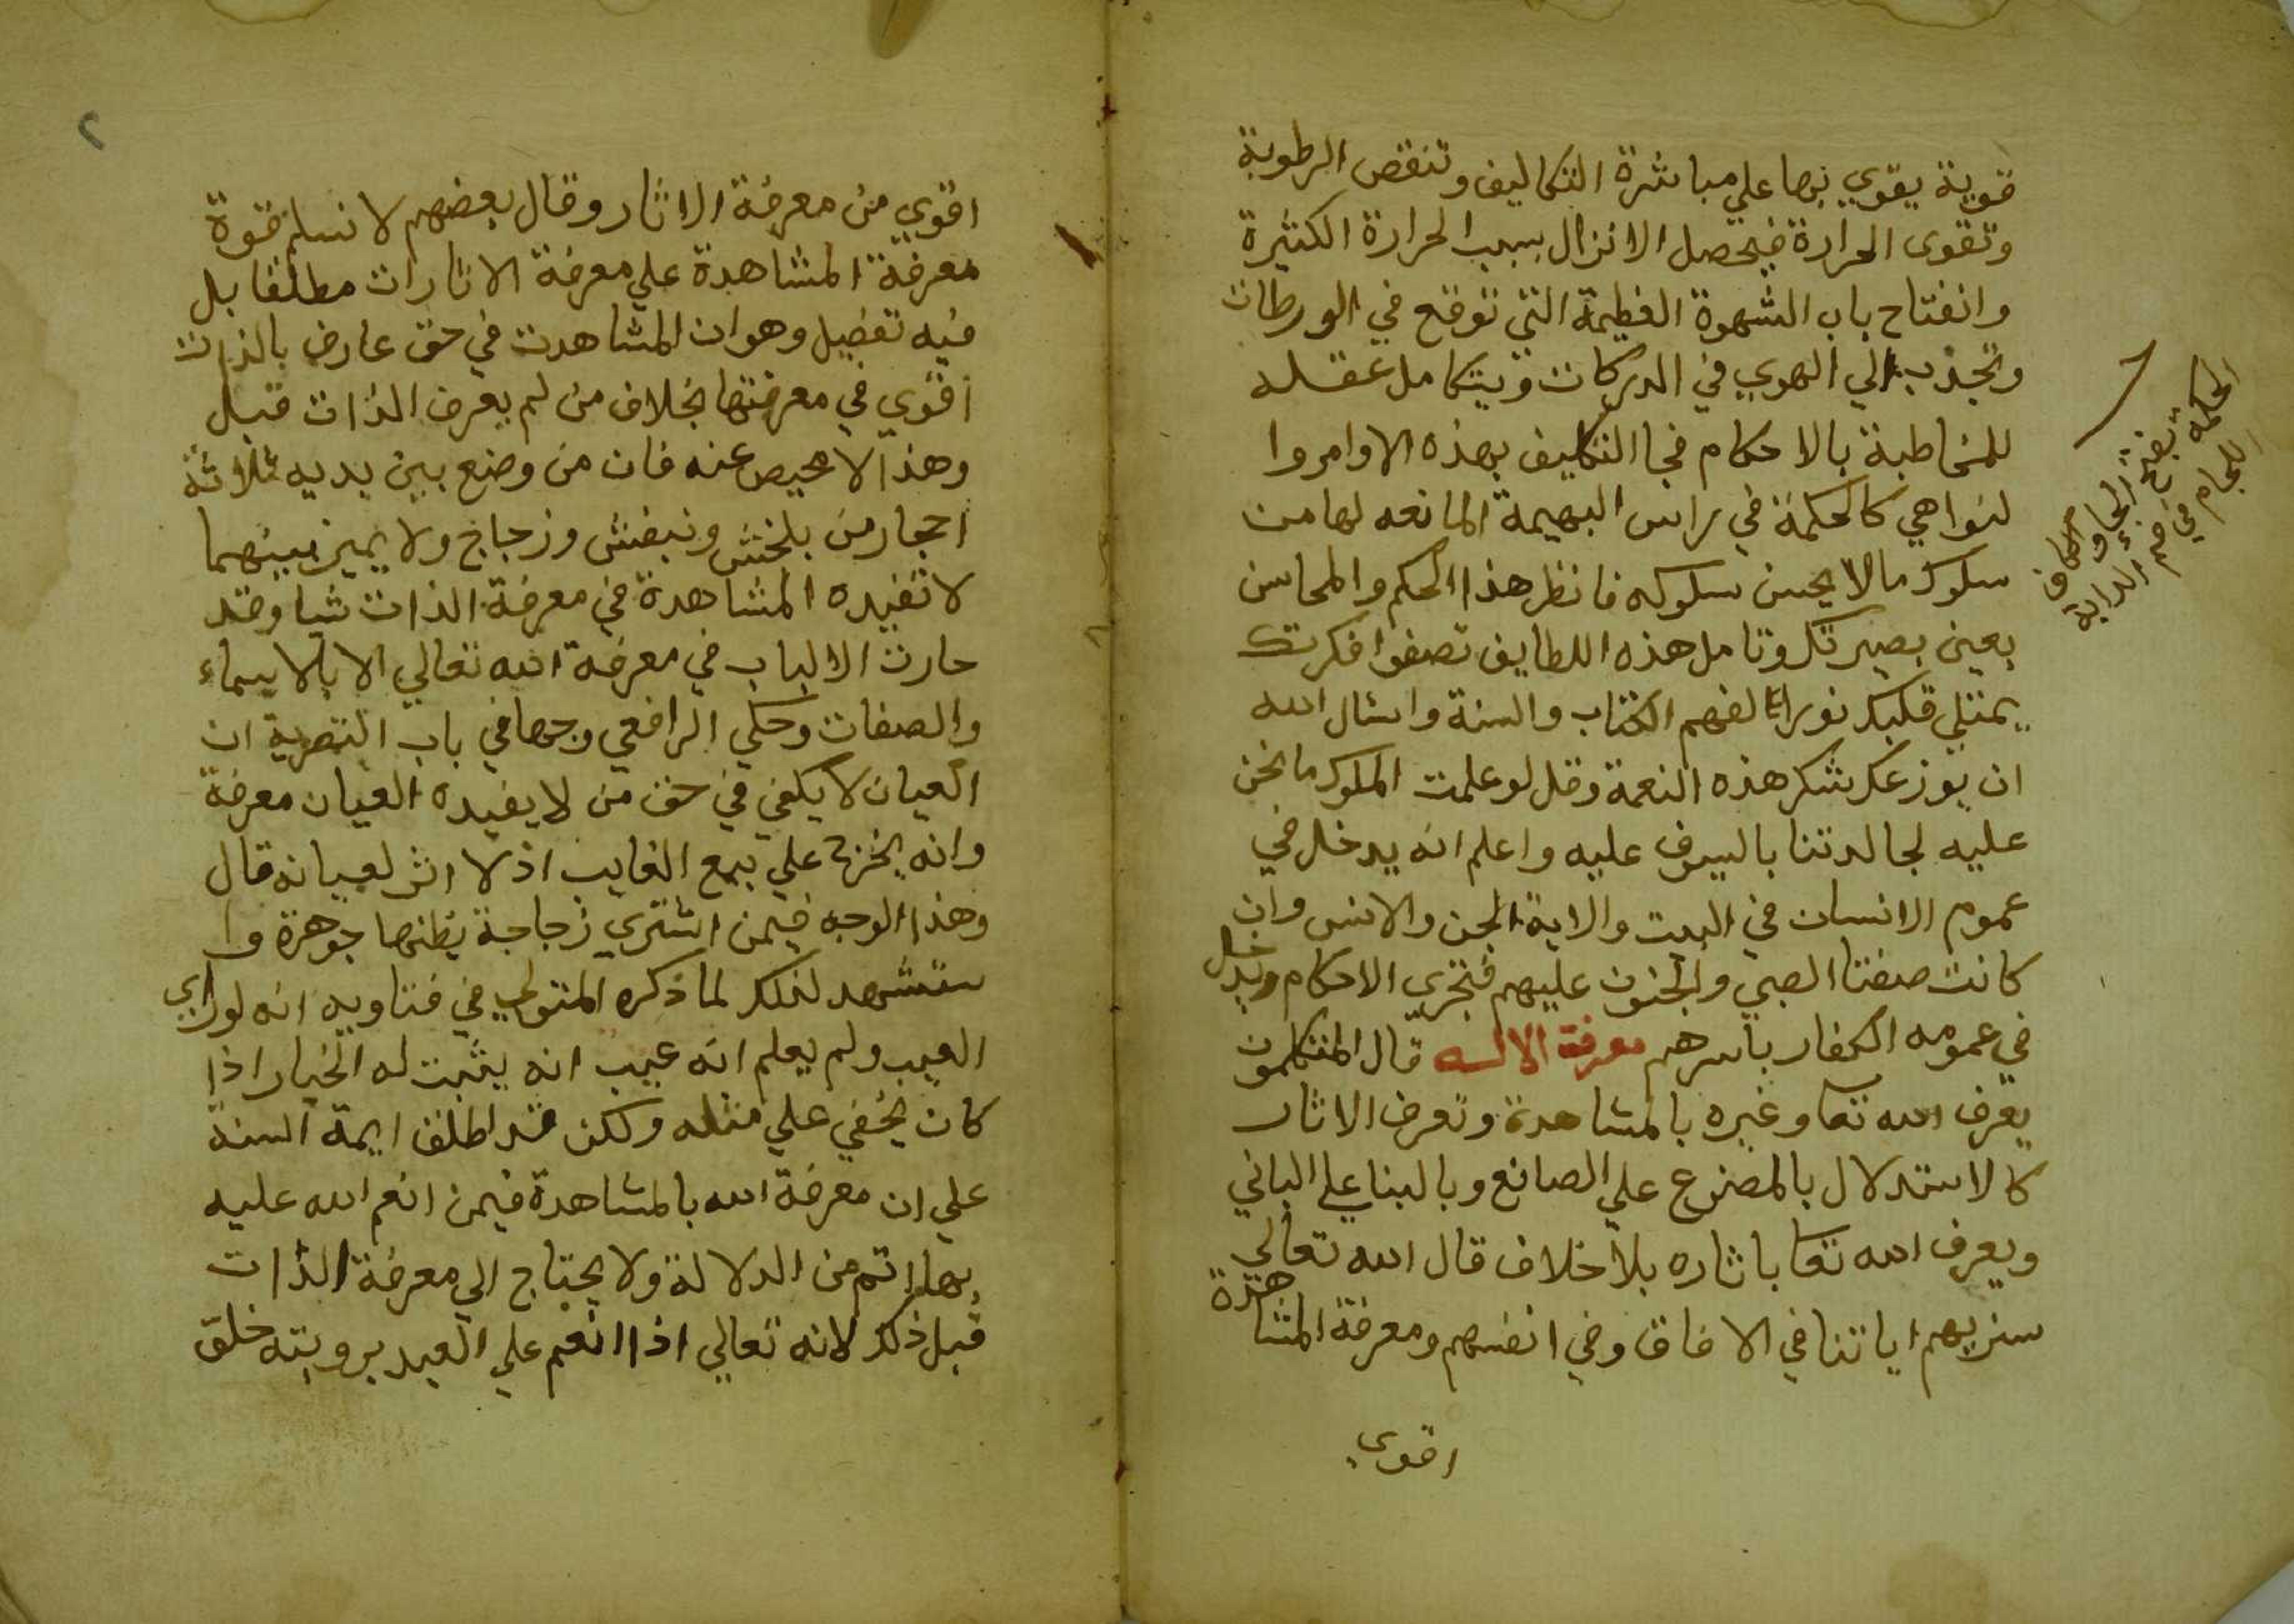 قوية يقوي بها علي مباشرة التكاليف وتنقص الرطوبة
وتقوى الحرارة فيحصل الانزال بسبب الحرارة الكثيرة
وانفتاح باب الشهوة العظيمة التي توقع في الورطات
وتجذب الي الهوي في الدركات ويتكامل عقله
للمخاطبة بالاحكام فجا التكليف بهذه الاوامر وا
لنواهي كالحكمة في راس البهيمة المانعه لها من
سلوك ما لا يحسن سلوكه فانظر هذا الحكم والمحاسن
بعين بصيرتك وتامل هذه اللطايف تصفوا فكرتك
يمتلي قلبك نورا لفهم الكتاب والسنة واسال الله
ان يوزعك شكر هذه النعمة وقل لو علمت الملوك ما نحن
عليه لجالدتنا بالسيوف عليه واعلم انه يدخل في
عموم الانسان في البيت والاية الجن والانس وان
كانت صفتا الصبي والجنون عليهم فتجري الاحكام ويدخل
في عمومه الكفار باسرهم معرفة الاله قال المتكلمون
يعرف الله تعا وغيره بالمشاهدة وتعرف الاثار
كالاستدلال بالمصنوع علي الصانع وبالبنا علي الباني
ويعرف الله تعا باثاره بلا خلاف قال الله تعالي
سنريهم اياتنا في الافاق وفي انفسهم ومعرفة المشاهدة
اقوي
الحكمة بفتح الحاء والكاف
اللجام في فم الدابة
٢
اقوي من معرفة الاثار وقال بعضهم لا نسلم قوة
معرفة المشاهدة علي معرفة الاثارات مطلقا بل
فيه تفضيل وهو ان المشاهدت في حق عارف بالذات
اقوي في معرفتها بخلاف من لم يعرف الذات قبل
وهذا لا محيص عنه فان من وضع بين يديه ثلاثة
احجار من بلخش وبنفش وزجاج ولا يميز بينهما
لا تفيده المشاهدة في معرفة الذات شيا وقد
حارت الالباب في معرفة الله تعالي الا بالاسماء
والصفات وحكي الرافعي وجها في باب التصرية ان
العيان لا يكفي في حق من لا يفيده العيان معرفة
وانه يخرج علي بيع الغايب اذ لا اثر لعيانه قال
وهذا الوجه فيمن اشتري زجاجة يظنها جوهرة وا
ستشهد لذلك لما ذكره المتولي في فتاويه انه لو راي
العيب ولم يعلم انه عيب انه يثبت له الخيار اذا
كان يخفي علي مثله ولكن قد اطلق ايمة السنة
علي ان معرفة الله بالمشاهدة فيمن انعم الله عليه
بها اتم من الدلالة ولا يحتاج الي معرفة الذات
قبل ذلك لانه تعالي اذا انعم علي العبد برويته خلق